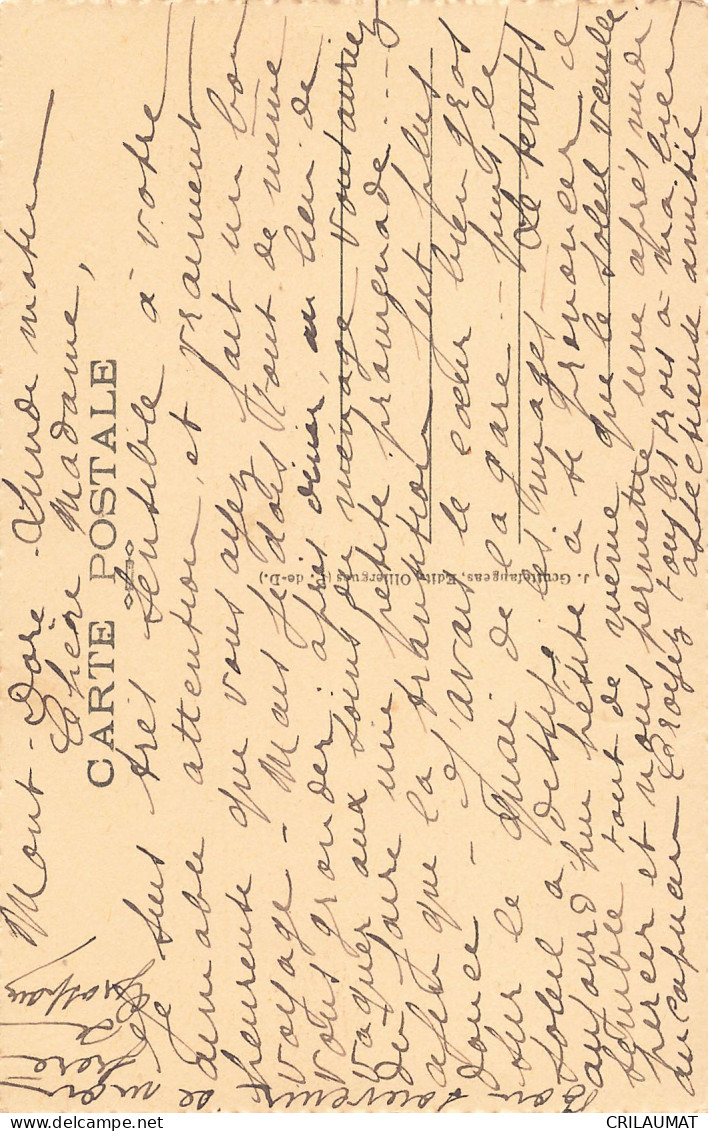 Mont-Dore - Lundi matin
Chère Madame,
CARTE POSTALE
Je suis très sensible à votre
aimable attention, et vraiment
heureuse que vous ayez fait un bon
voyage - Mais je dois tout de même
vous gronder : après dîner, au lieu de
vaquer aux soins du ménage vous auriez
dû faire une petite promenade ...
afin que la transition fut plus
douce - J'avais le cœur bien gros
sur le quai de la gare ... puis le
soleil a dissipé les nuages. Le temps
aujourd'hui hésite à se prononcer il
semble tout de même que le soleil veuille
percer et nous permettre une après midi
au capucin Croyez tous les trois à ma bien
affectueuse amitié
J. Gouttefangeas, Edit., Olliergues (P.-de-D.)
Bon souvenir
de mon
frère
CRILAUMAT